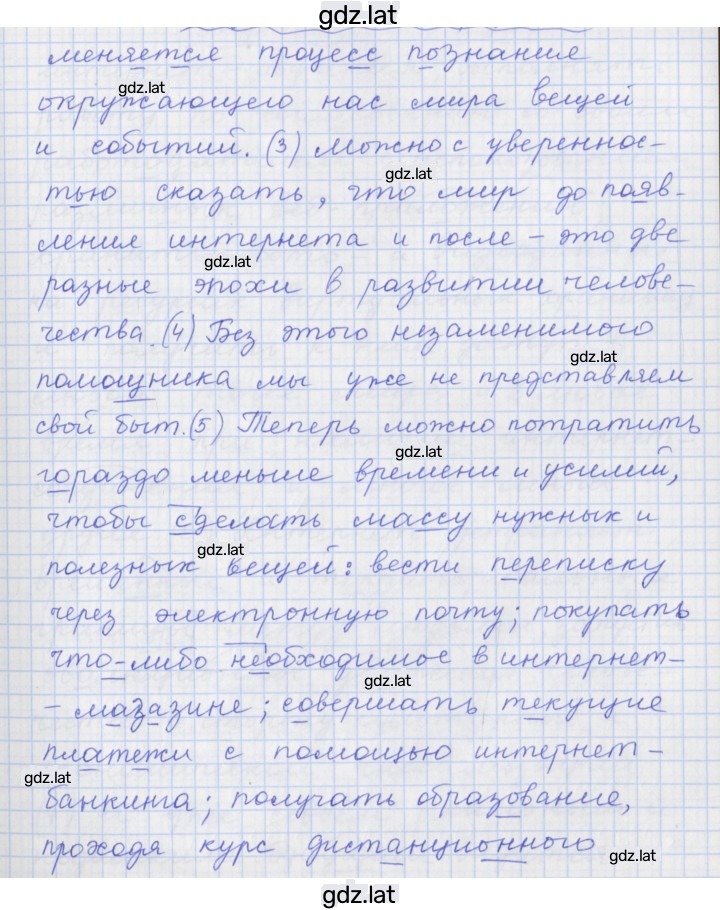 gdz.lat
меняется процесс познания
gdz.lat
окружающего нас мира вещей
и событий. (3) Можно с увереннос-
gdz.lat
тью сказать, что мир до появ-
ления интернета и после – это две
gdz.lat
разные эпохи в развитии челове-
чества. (4) Без этого незаменимого
gdz.lat
помощника мы уже не представляем
свой быт. (5) Теперь можно потратить
gdz.lat
гораздо меньше времени и усилий,
чтобы сделать массу нужных и
gdz.lat
полезных вещей: вести переписку
через электронную почту; покупать
что-либо необходимое в интернет-
gdz.lat
- мазазине; совершать текущие
платежи с помощью интернет-
gdz.lat
банкинга; получать образование,
проходя курс дистанционного
gdz.lat
gdz.lat